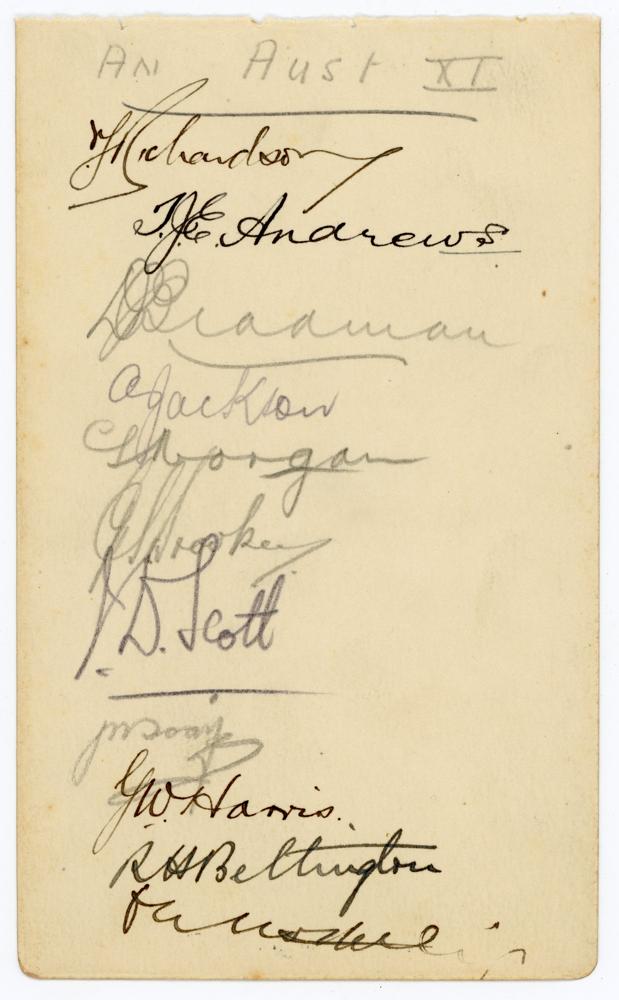 An Aust XI
V Y Richardson
T.J.E. Andrews
D Bradman
A Jackson
C Morgan
J.D. Scott
G.W. Harris.
R H Bettington